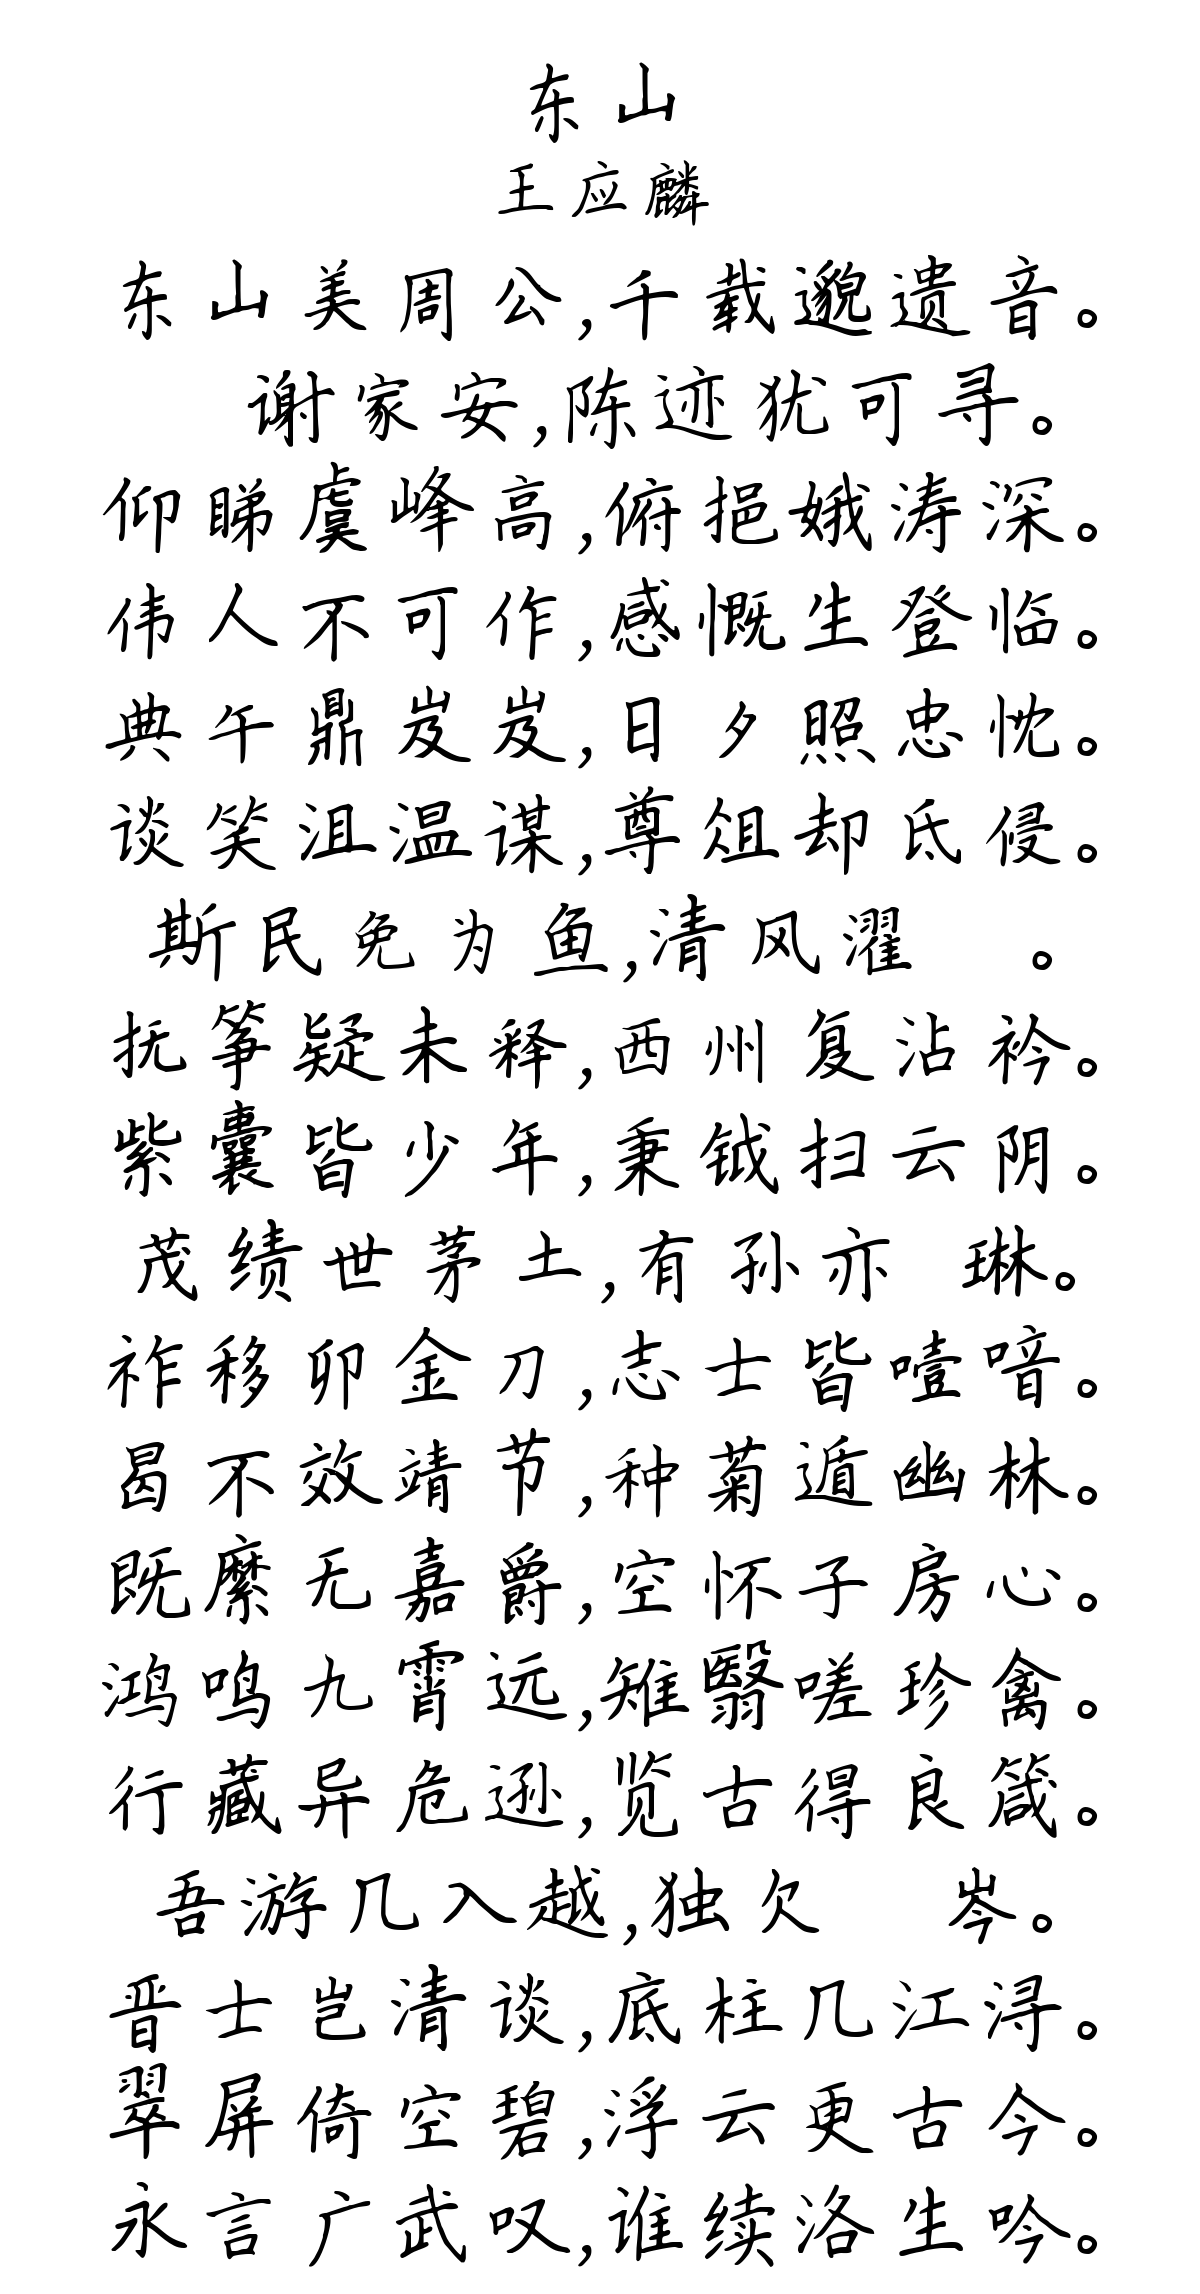 东山
王应麟
东山美周公,千载邈遗音。
谢家安,陈迹犹可寻。
仰睇虞峰高,俯挹娥涛深。
伟人不可作,感慨生登临。
典午鼎岌岌,日夕照忠忱。
谈笑沮温谋,尊俎却氐侵。
斯民免为鱼,清风濯 。
抚筝疑未释,西州复沾衿。
紫囊皆少年,秉钺扫云阴。
茂绩世茅土,有孙亦 琳。
祚移卯金刀,志士皆噎喑。
曷不效靖节,种菊遁幽林。
既縻无嘉爵,空怀子房心。
鸿鸣九霄远,雉翳嗟珍禽。
行藏异危逊,览古得良箴。
吾游几入越,独欠 岑。
晋士岂清谈,底柱几江浔。
翠屏倚空碧,浮云更古今。
永言广武叹,谁续洛生吟。